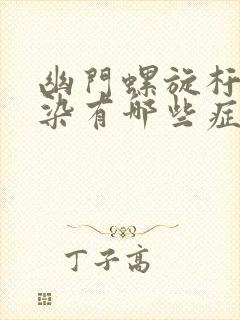 幽門螺旋杆
染有哪些症
丁子高